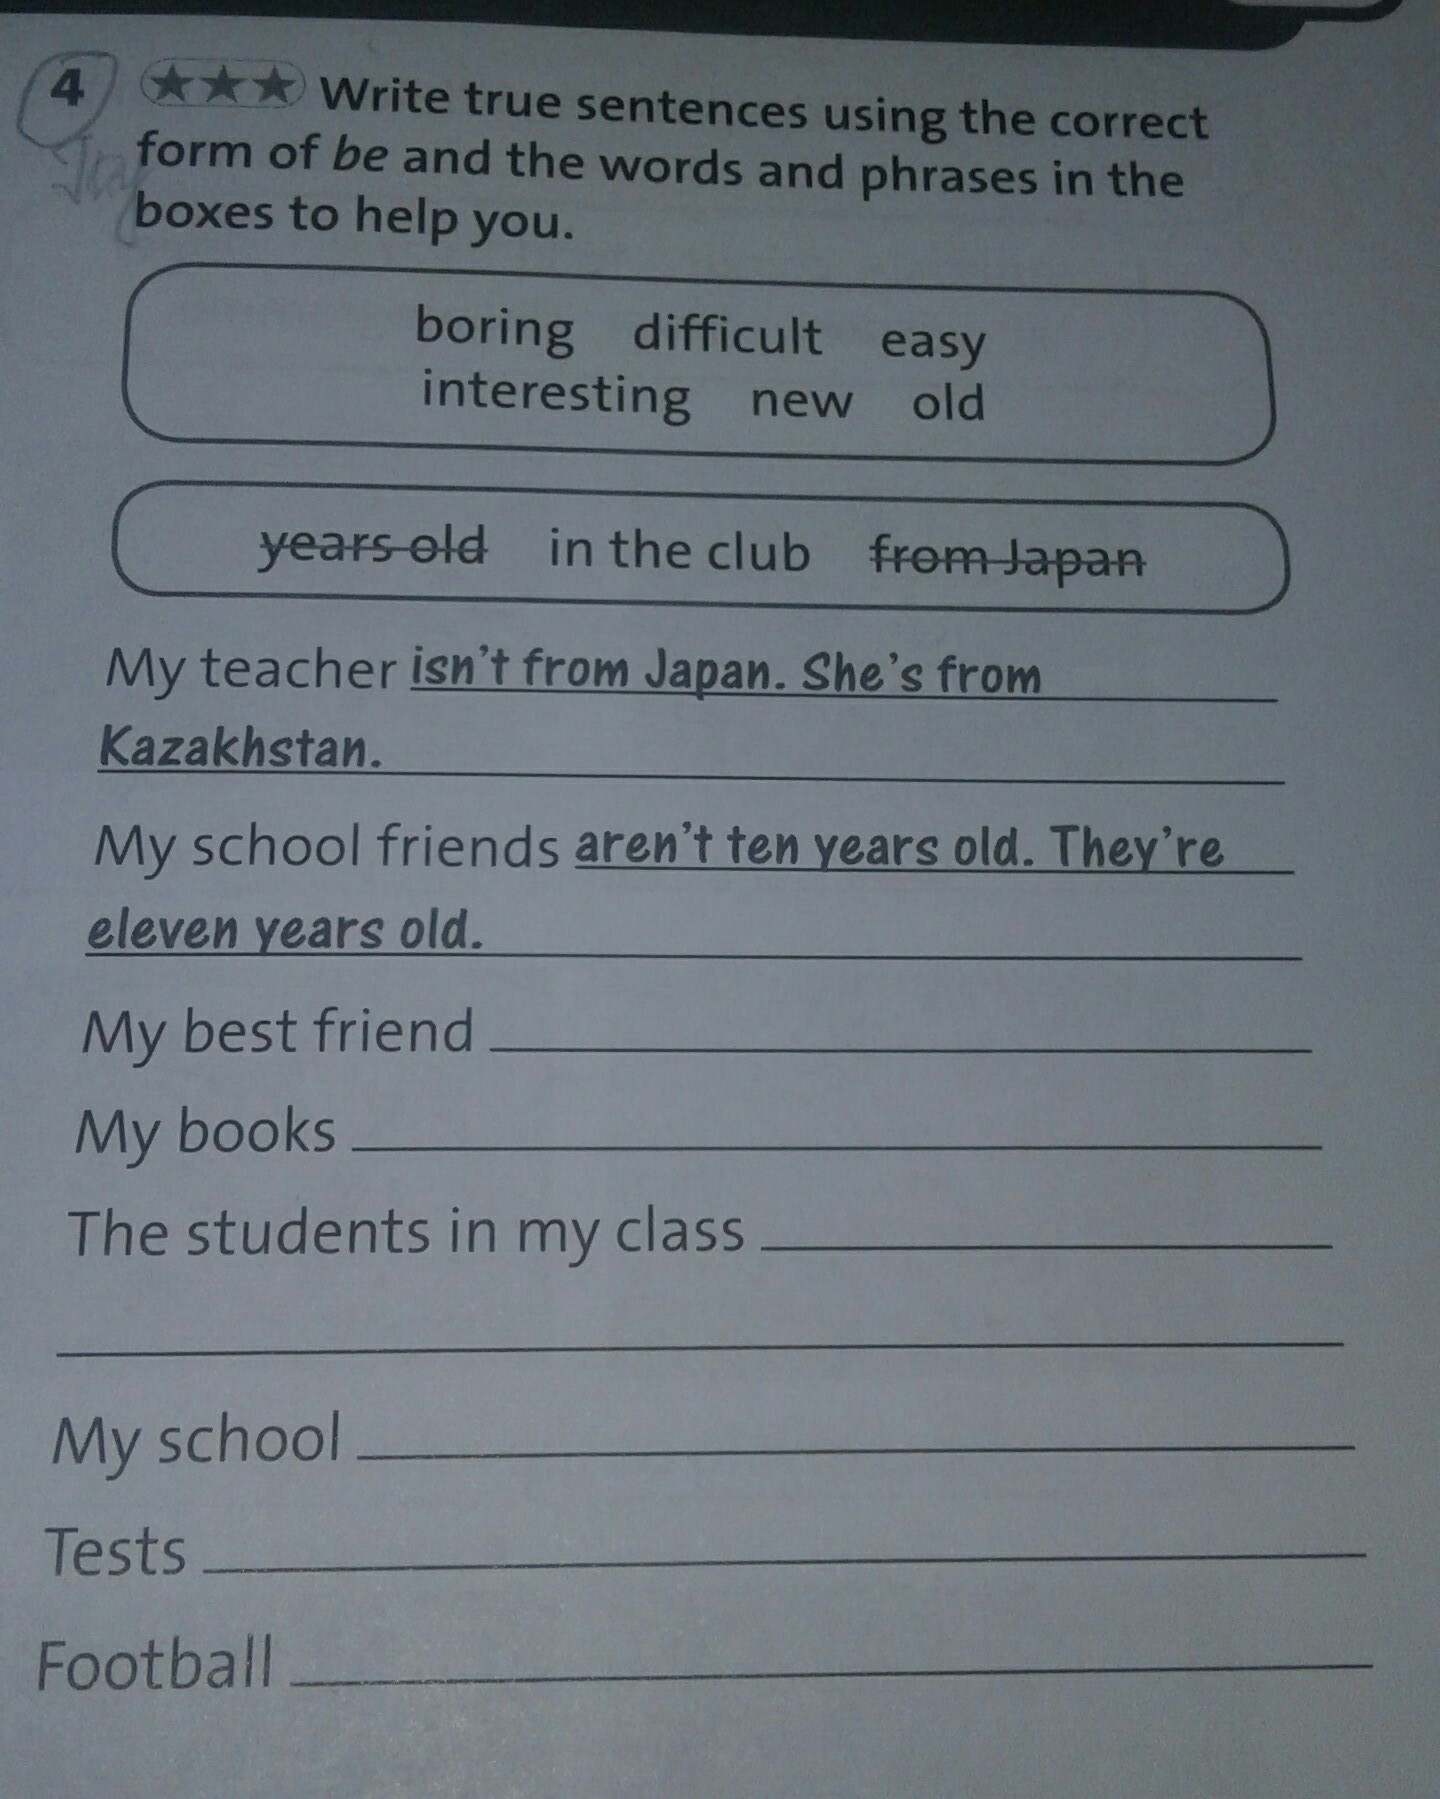 4 ★★★ Write true sentences using the correct
form of be and the words and phrases in the
boxes to help you.
boring difficult easy
interesting new old
years old in the club from Japan
My teacher isn't from Japan. She's from
Kazakhstan.
My school friends aren't ten years old. They're
eleven years old.
My best friend
My books
The students in my class
My school
Tests
Football